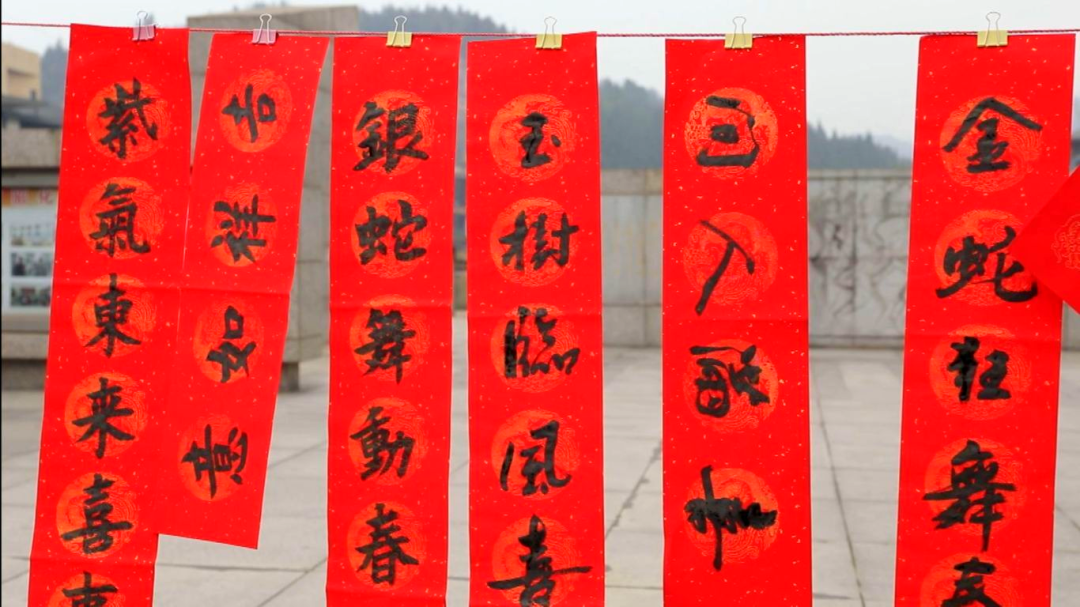 紫氣東来喜
吉祥如意
銀蛇舞動春
玉樹臨風喜
金蛇狂舞